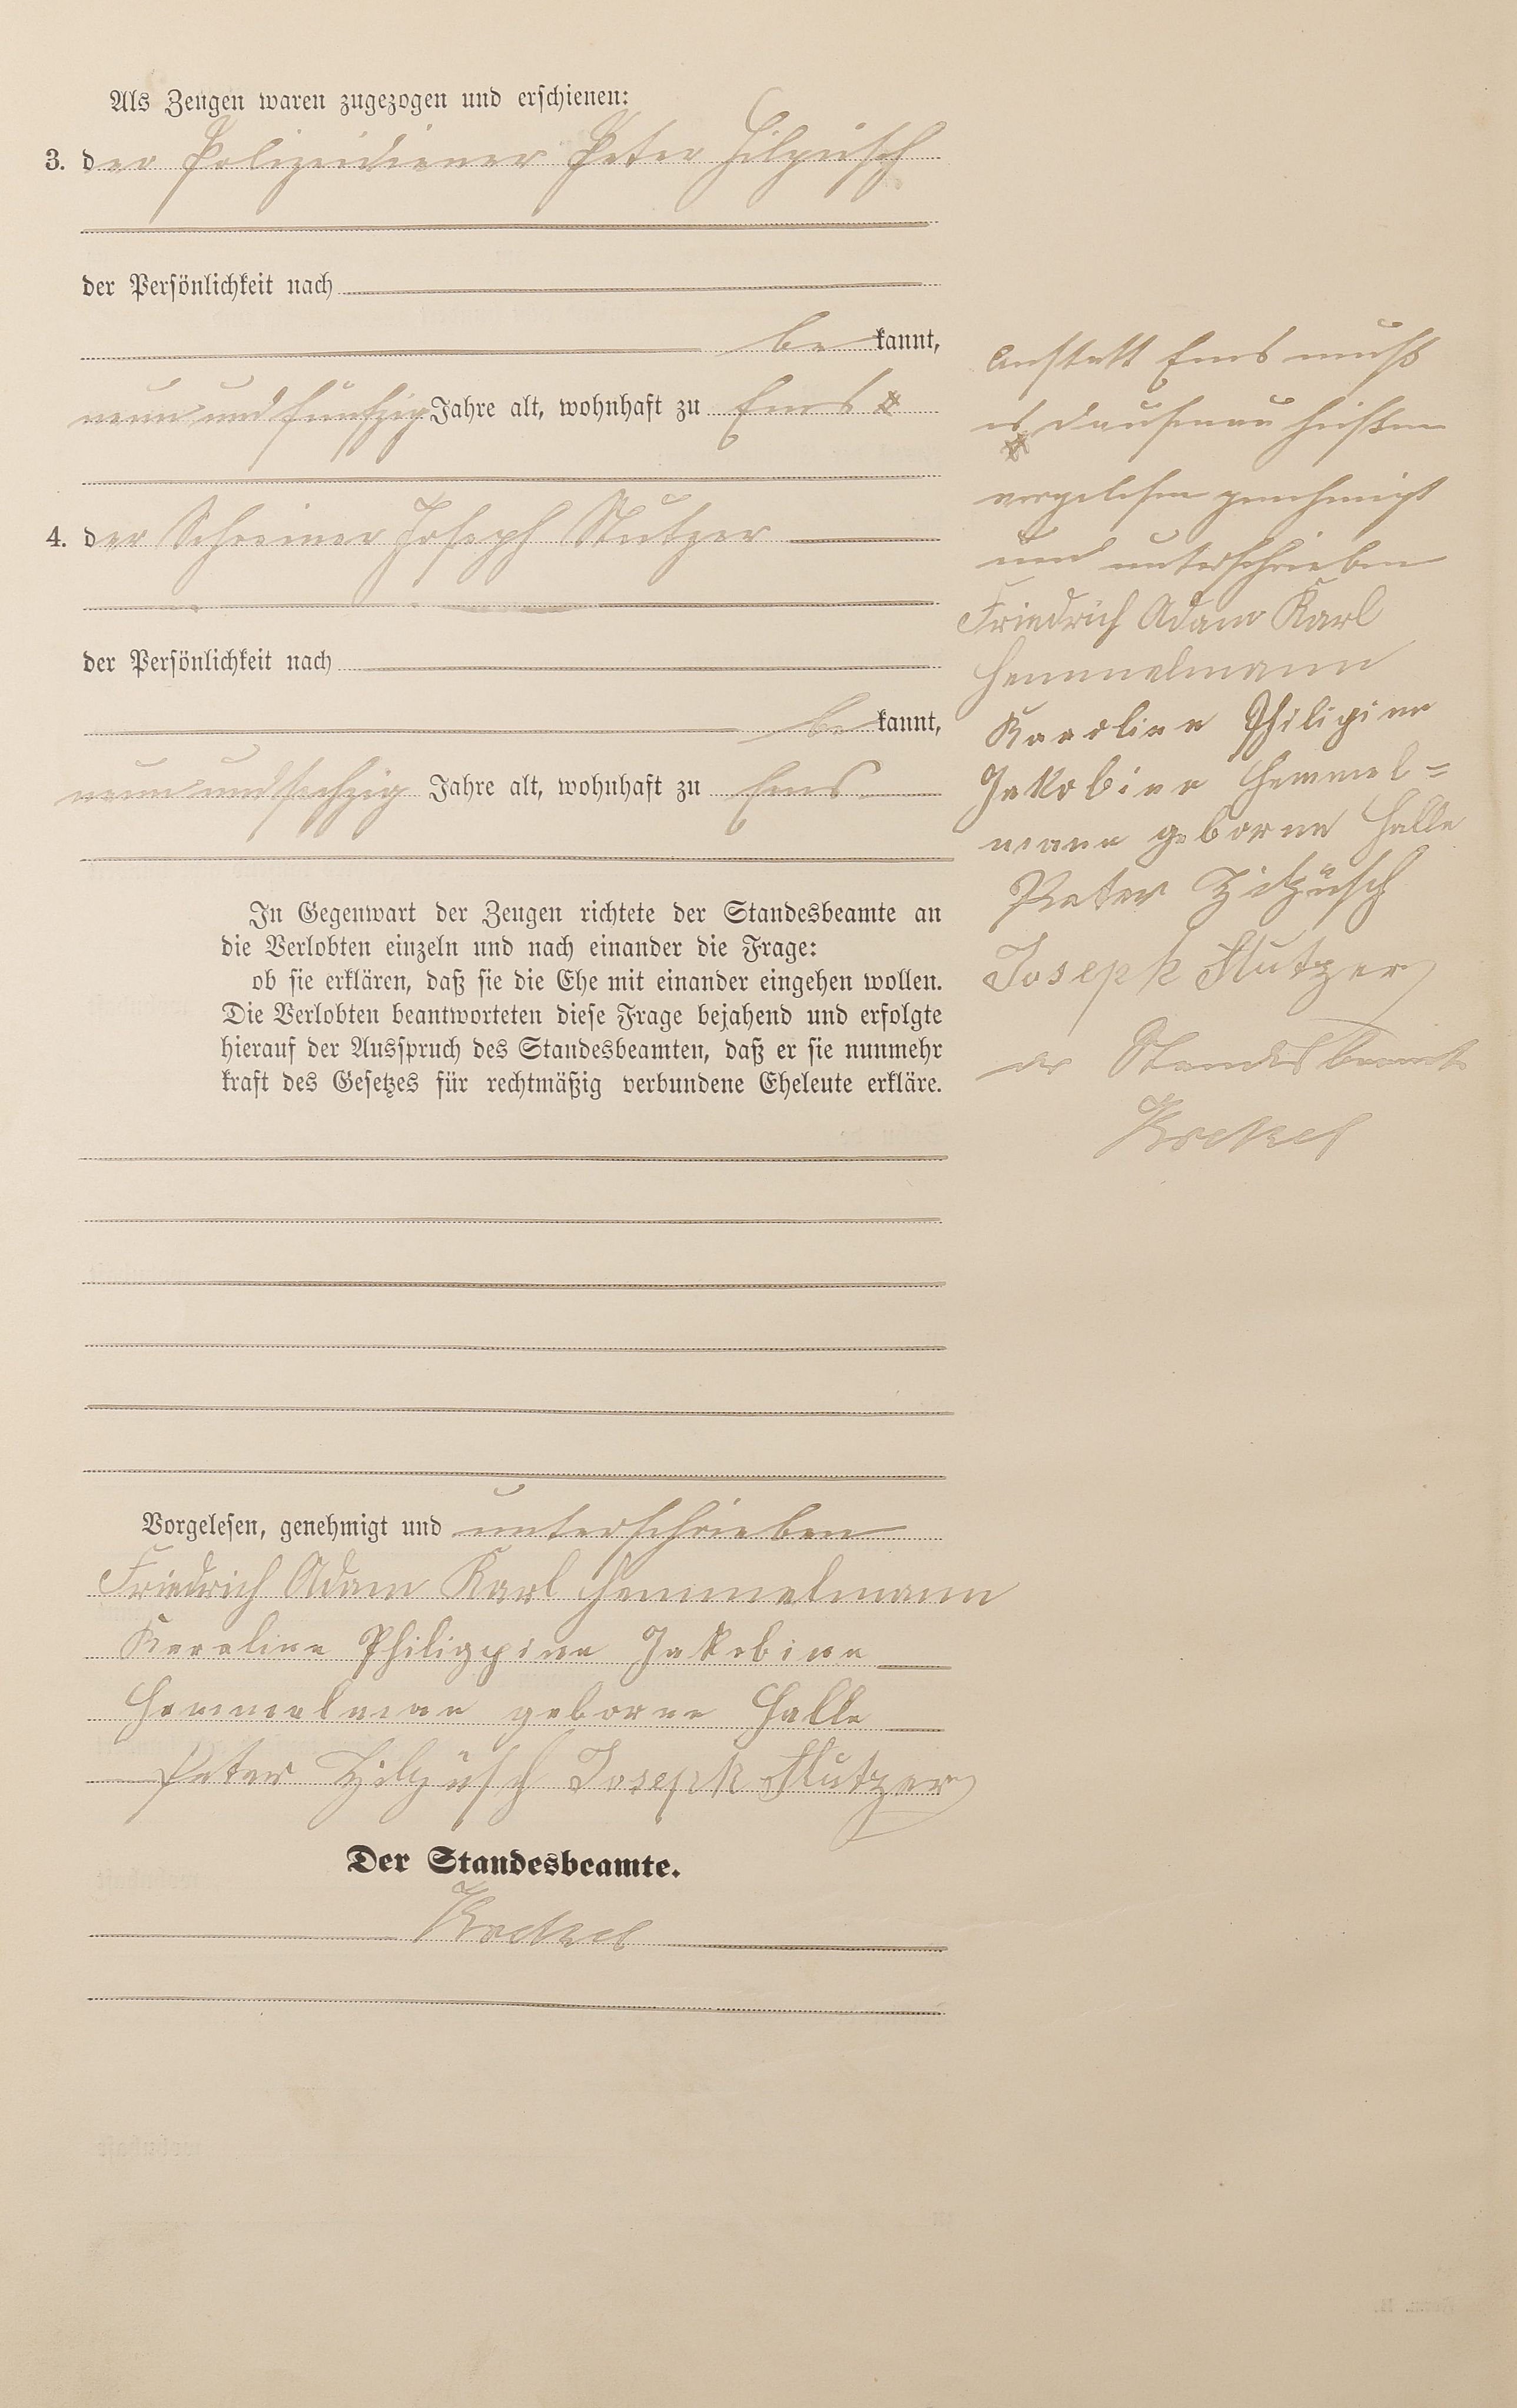 Als Zeugen waren zugezogen und erschienen:
3. der Polizeidiener Peter Hilpüsch
der Persönlichkeit nach
bekannt,
neun und fünfzig Jahre alt, wohnhaft zu Ems #
4. der Schreiner Joseph Stutzer
der Persönlichkeit nach
bekannt,
neun und sechzig Jahre alt, wohnhaft zu Ems
In Gegenwart der Zeugen richtete der Standesbeamte an
die Verlobten einzeln und nach einander die Frage:
ob sie erklären, daß sie die Ehe mit einander eingehen wollen.
Die Verlobten beantworteten diese Frage bejahend und erfolgte
hierauf der Ausspruch des Standesbeamten, daß er sie nunmehr
kraft des Gesetzes für rechtmäßig verbundene Eheleute erkläre.
Vorgelesen, genehmigt und unterschrieben
Friedrich Adam Karl Hemmelmann
Karoline Philippine Jakobine
Hemmelmann geborne Halle
Peter Hilpüsch Joseph Stutzer
Der Standesbeamte.
anstatt Ems muß
# es Dausenau heißen
vorgelesen genehmigt
und unterschrieben
Friedrich Adam Karl
Hemmelmann
Karoline Philipine
Jakobine Hemmel=
mann geborne Halle
Peter Hilpüsch
Joseph Stutzer
der Standesbeamte